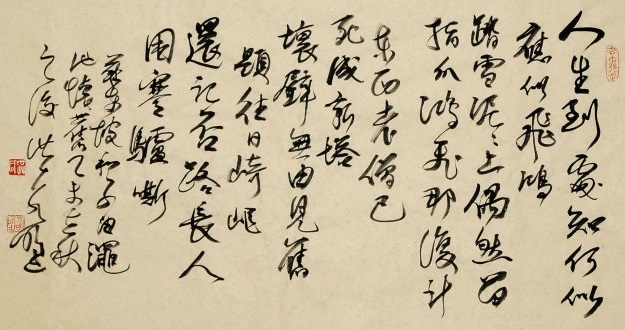 人生到處知何似
應似飛鴻
踏雪泥〻上偶然留
指爪鴻飛那復計
東西老僧已
死成新塔
壞壁無由見舊
題往日崎嶇
還記否路長人
困蹇驢嘶
蘇東坡和子由澠
池懷舊未秋
之後